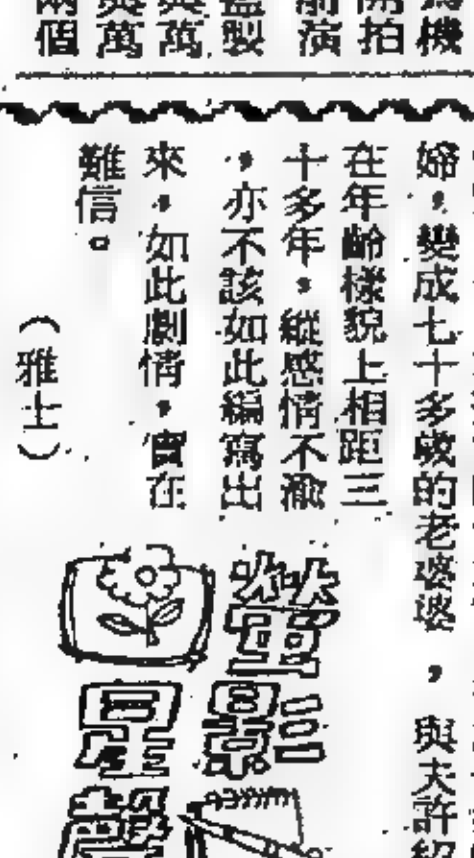 機
開拍
前演
監製
與萬
與萬
兩個
婦，變成七十多歲的老婆婆，與夫許紹
在年齡樣貌上相距三
十多年，縱感情不渝
，亦不該如此編寫出
來，如此劇情，實在
難信。
（雅士）
螢影
星聲